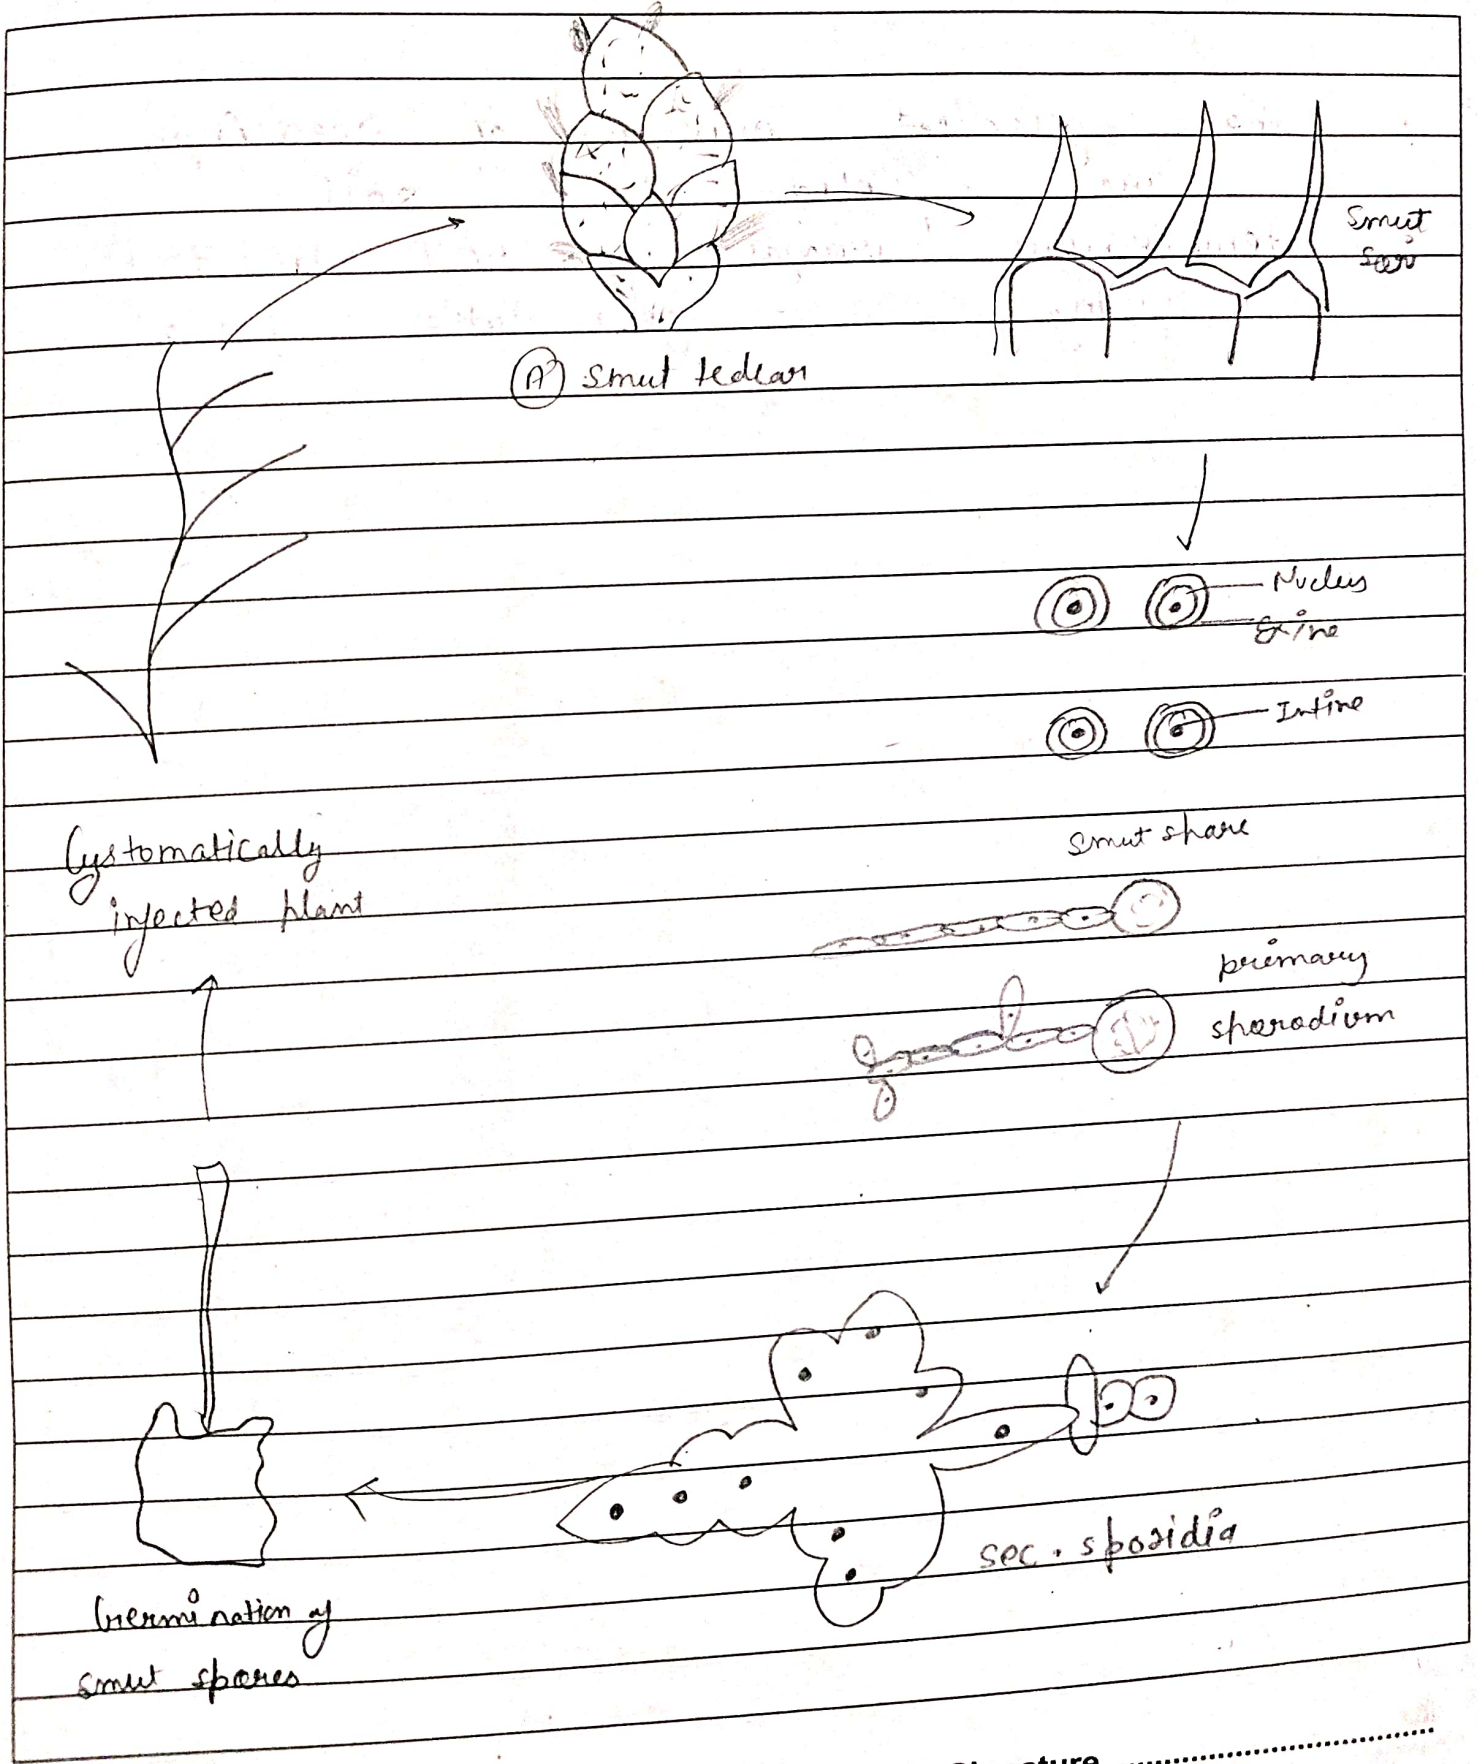 Smut
Sori
(A) Smut tedear
Nucleus
Exine
Intine
Smut spore
Cystomatically
injected plant
primary
sporodium
sec. sporidia
Germination of
smut spores
Signature